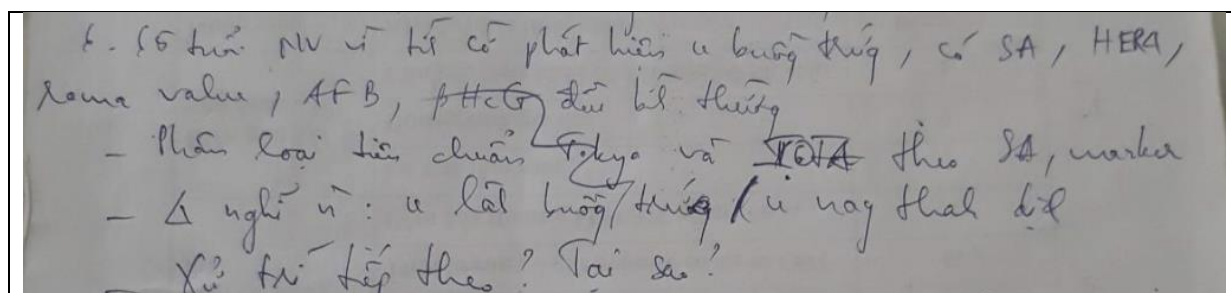 6. 65 tuổi NV vì tiền có phát hiện u buồng trứng, có SA, HE4,
Roma value, AFB, βHcG đều bt thường
- Phân loại tiêu chuẩn Tokyo và IOTA theo SA, marker
- Δ nghĩ vì: u lành buồng trứng / u nang thanh dịch
- Xử trí tiếp theo? Tại sao?